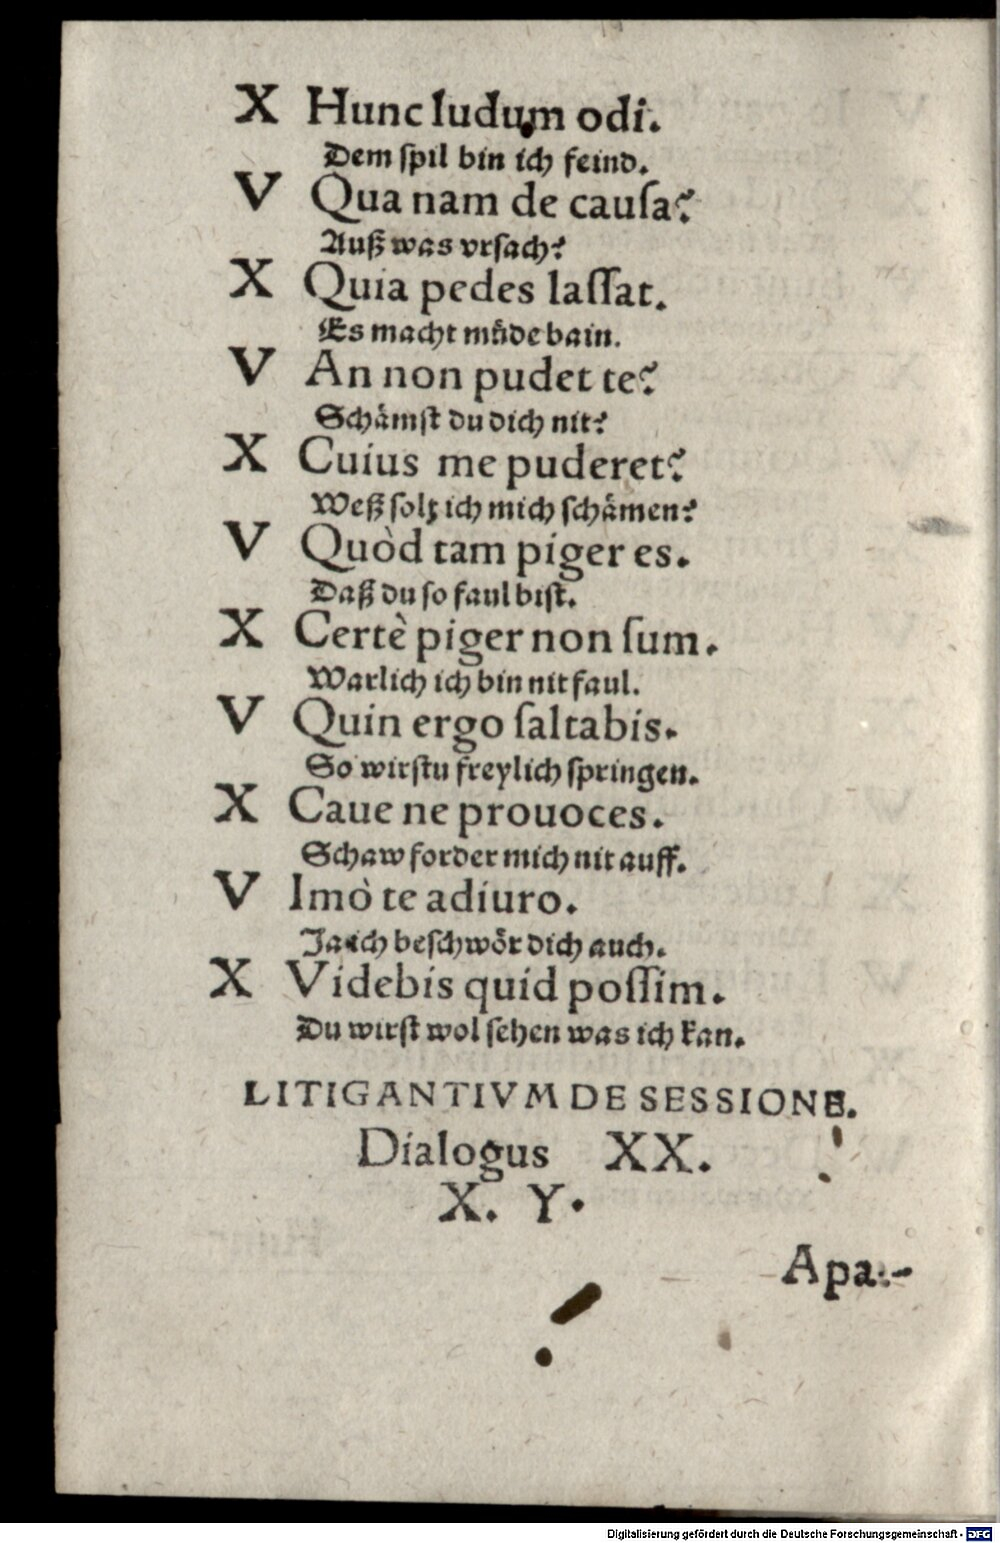 X Hunc ludum odi.
Dem spil bin ich feind.
V Qua nam de causa?
Auß was vrsach?
X Quia pedes lassat.
Es macht müde bain.
V An non pudet te?
Schämst du dich nit?
X Cuius me puderet?
Weß solt ich mich schämen?
V Quòd tam piger es.
Daß du so faul bist.
X Certè piger non sum.
Warlich ich bin nit faul.
V Quin ergo saltabis.
So wirstu freylich springen.
X Caue ne prouoces.
Schaw forder mich nit auff.
V Imò te adiuro.
Ja ich beschwör dich auch.
X Videbis quid possim.
Du wirst wol sehen was ich kan.
LITIGANTIVM DE SESSIONE.
Dialogus XX.
X. Y.
Apa-
Digitalisierung gefördert durch die Deutsche Forschungsgemeinschaft - DFG